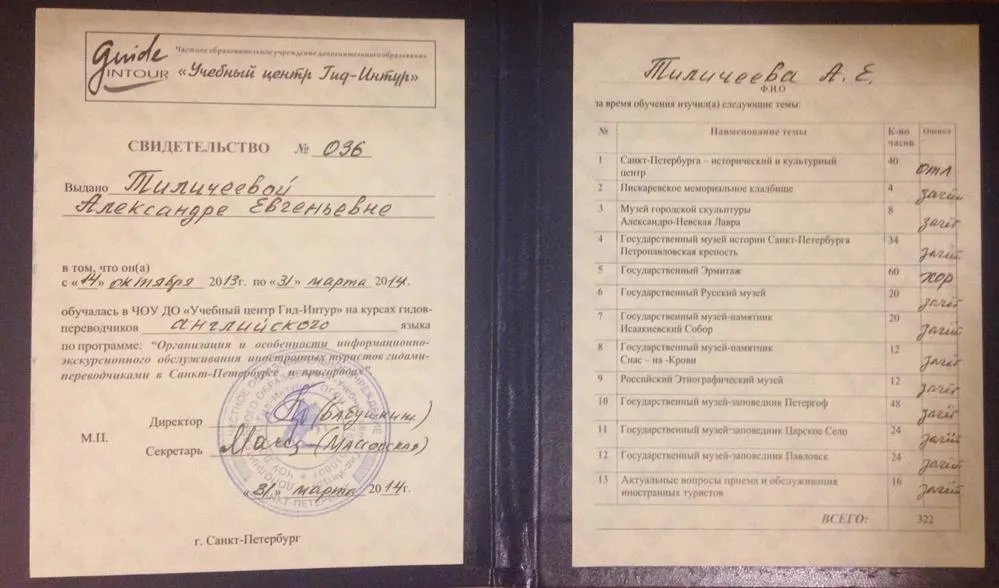 guide
INTOUR
Частное образовательное учреждение дополнительного образования
«Учебный центр Гид-Интур»
СВИДЕТЕЛЬСТВО № 036
Выдано Тиличеевой
Александре Евгеньевне
в том, что он(а)
с «14» октября 2013г. по «31» марта 2014г.
обучалась в ЧОУ ДО «Учебный центр Гид-Интур» на курсах гидов-
переводчиков английского языка
по программе: “Организация и особенности информационно-
экскурсионного обслуживания иностранных туристов гидами-
переводчиками в Санкт-Петербурге и пригородах”
Директор (Бабушкин)
М.П.
Секретарь (Массарская)
«31» марта 2014г.
г. Санкт-Петербург
Тиличеева А. Е.
Ф.И.О
за время обучения изучил(а) следующие темы:
№ Наименование темы К-во часов Оценка
1 Санкт-Петербурга – исторический и культурный центр 40 отл
2 Пискаревское мемориальное кладбище 4 зачёт
3 Музей городской скульптуры Александро-Невская Лавра 8 зачёт
4 Государственный музей истории Санкт-Петербурга Петропавловская крепость 34 зачёт
5 Государственный Эрмитаж 60 хор
6 Государственный Русский музей 20 зачёт
7 Государственный музей-памятник Исаакиевский Собор 20 зачёт
8 Государственный музей-памятник Спас – на -Крови 12 зачёт
9 Российский Этнографический музей 12 зачёт
10 Государственный музей-заповедник Петергоф 48 зачёт
11 Государственный музей-заповедник Царское Село 24 зачёт
12 Государственный музей-заповедник Павловск 24 зачёт
13 Актуальные вопросы приема и обслуживания иностранных туристов 16 зачёт
ВСЕГО: 322